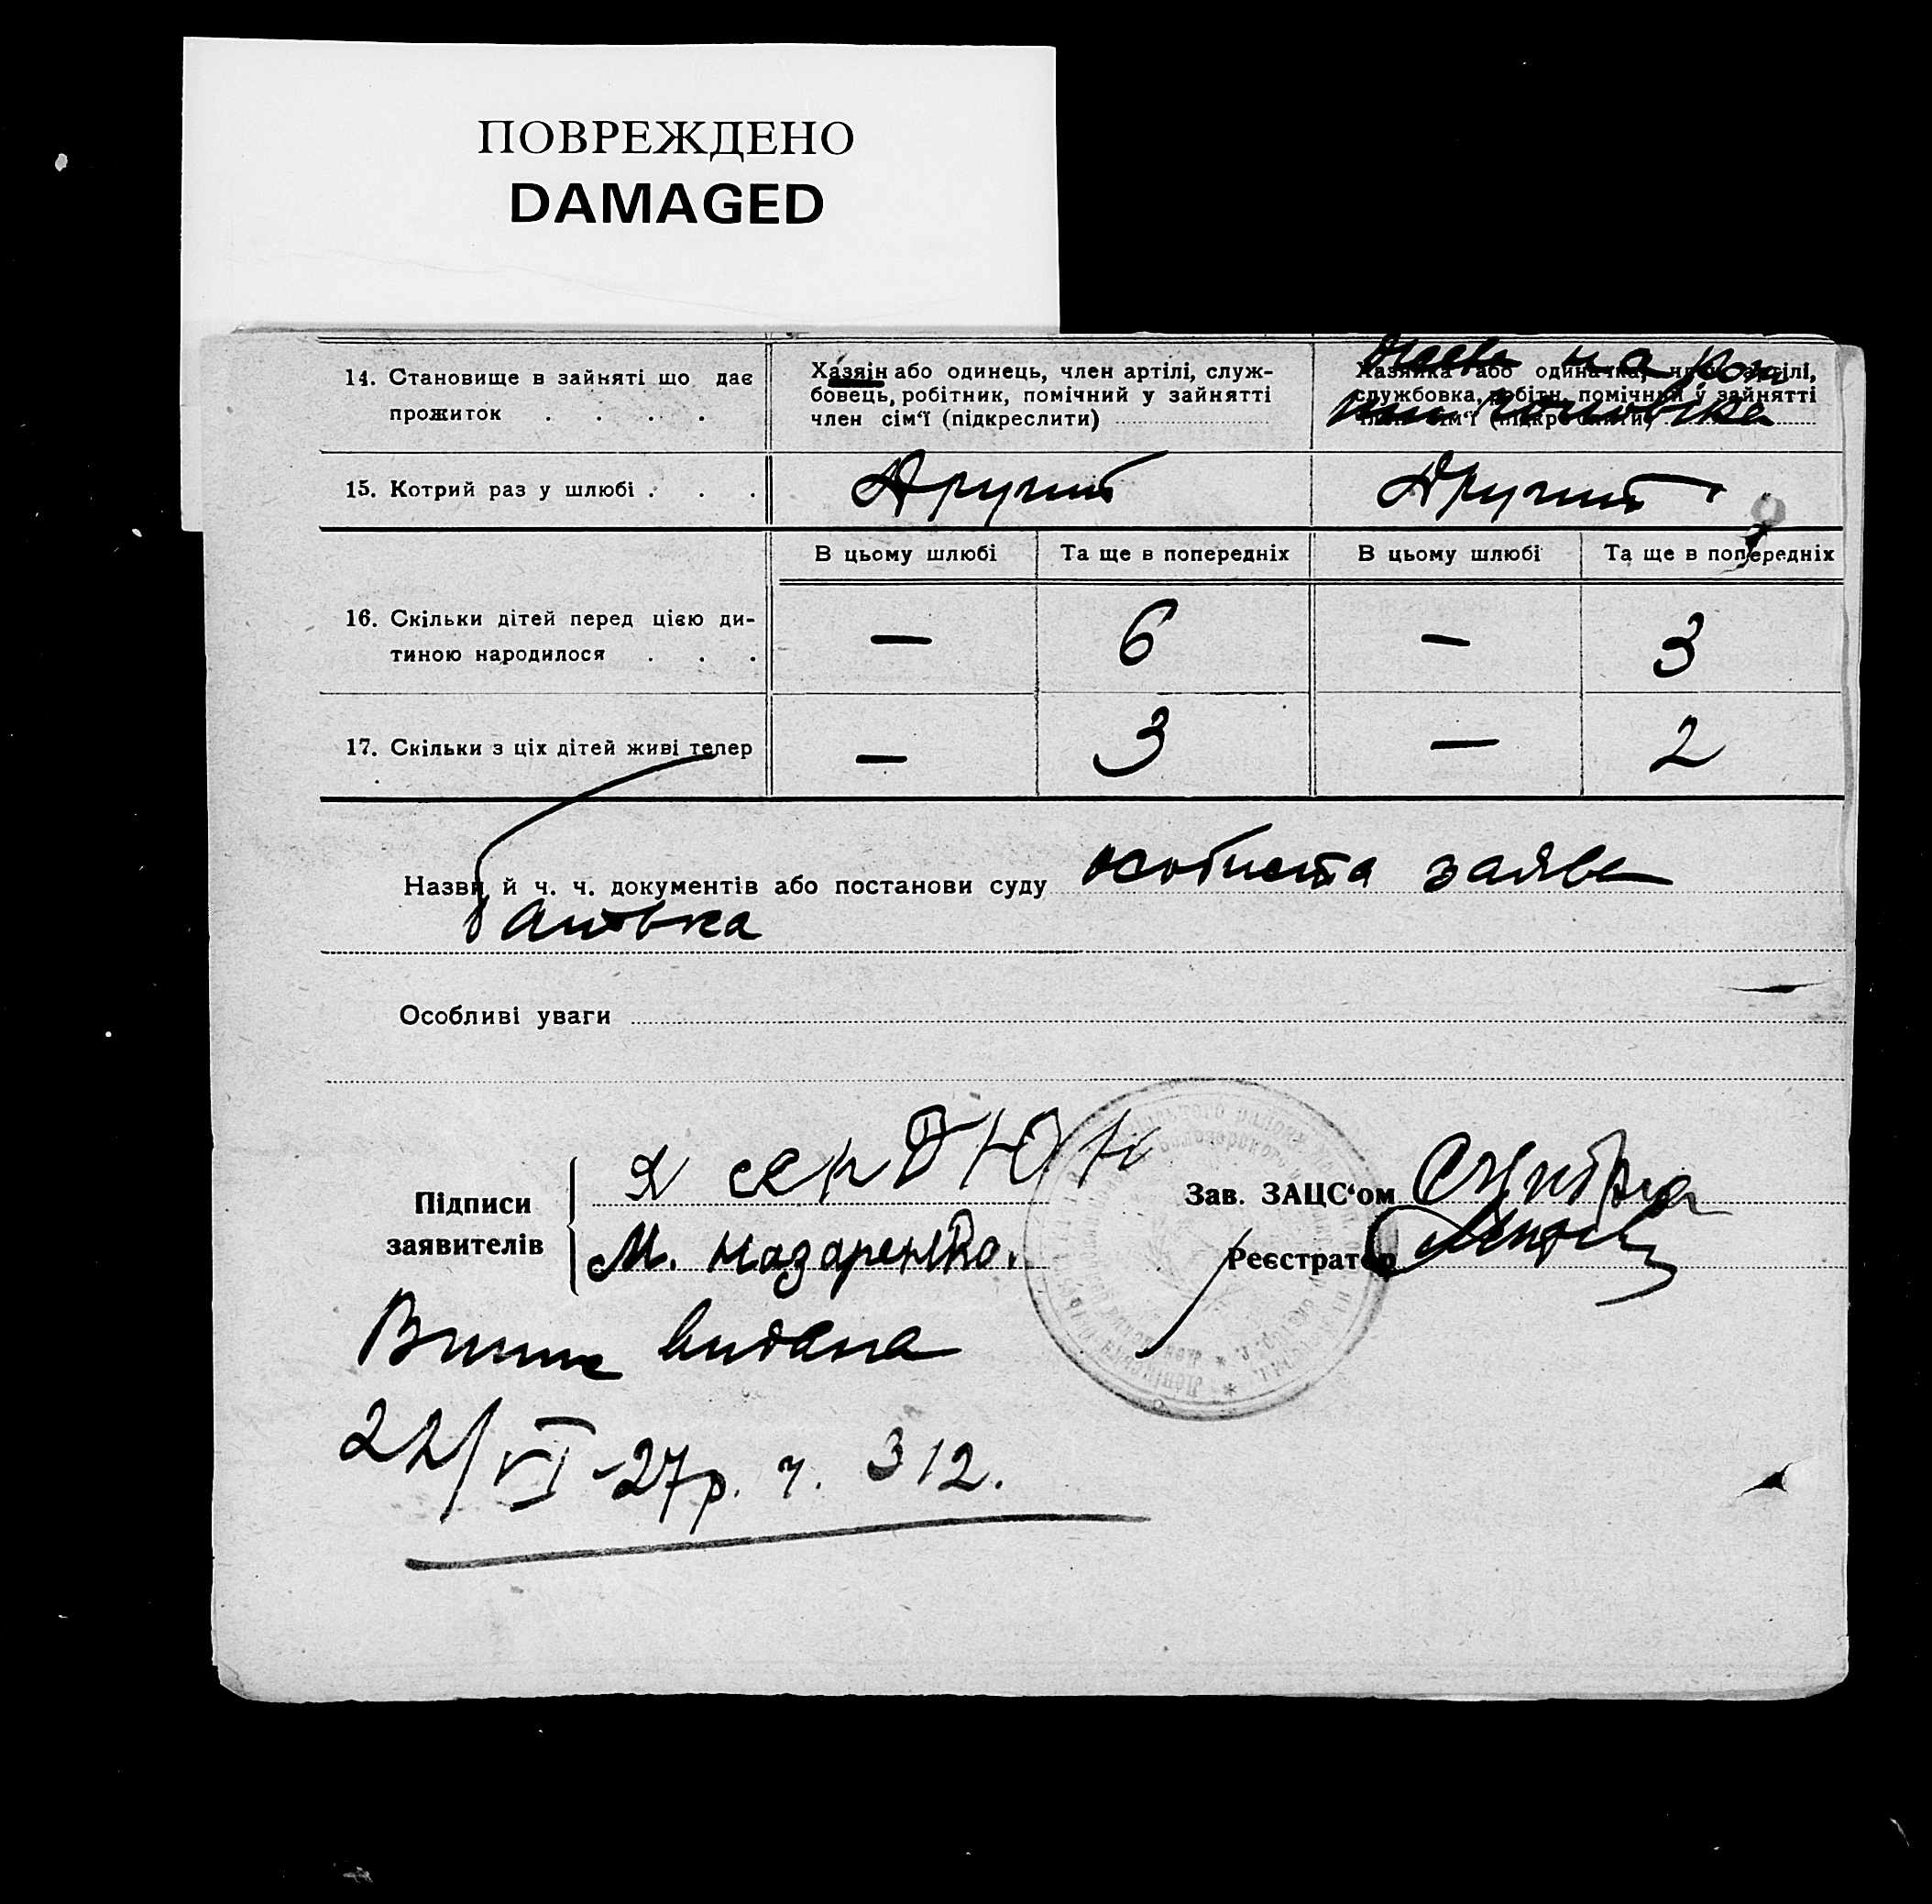 ПОВРЕЖДЕНО
DAMAGED
14. Становище в зайняті що дає
прожиток . . . .
Хазяін або одинець, член артілі, служ-
бовець, робітник, помічний у зайнятті
член сім‘ї (підкреслити)
Хазяйка або одиначка, член артілі,
службовка, робітн., помічний у зайнятті
член сім‘ї (підкреслити)
живе на
чоловіка
15. Котрий раз у шлюбі . . .
Другий
Другий
В цьому шлюбі
Та ще в попередніх
В цьому шлюбі
Та ще в попередніх
16. Скільки дітей перед цією ди-
тиною народилося . . .
— 6 — 3
17. Скільки з ціх дітей живі тепер
— 3 — 2
Назви й ч. ч. документів або постанови суду особиста заява
батька
Особливі уваги
Підписи
заявителів
М. Назаренко.
Зав. ЗАЦС‘ом
Реєстратор
видана
22/VI-27р. ч. 312.